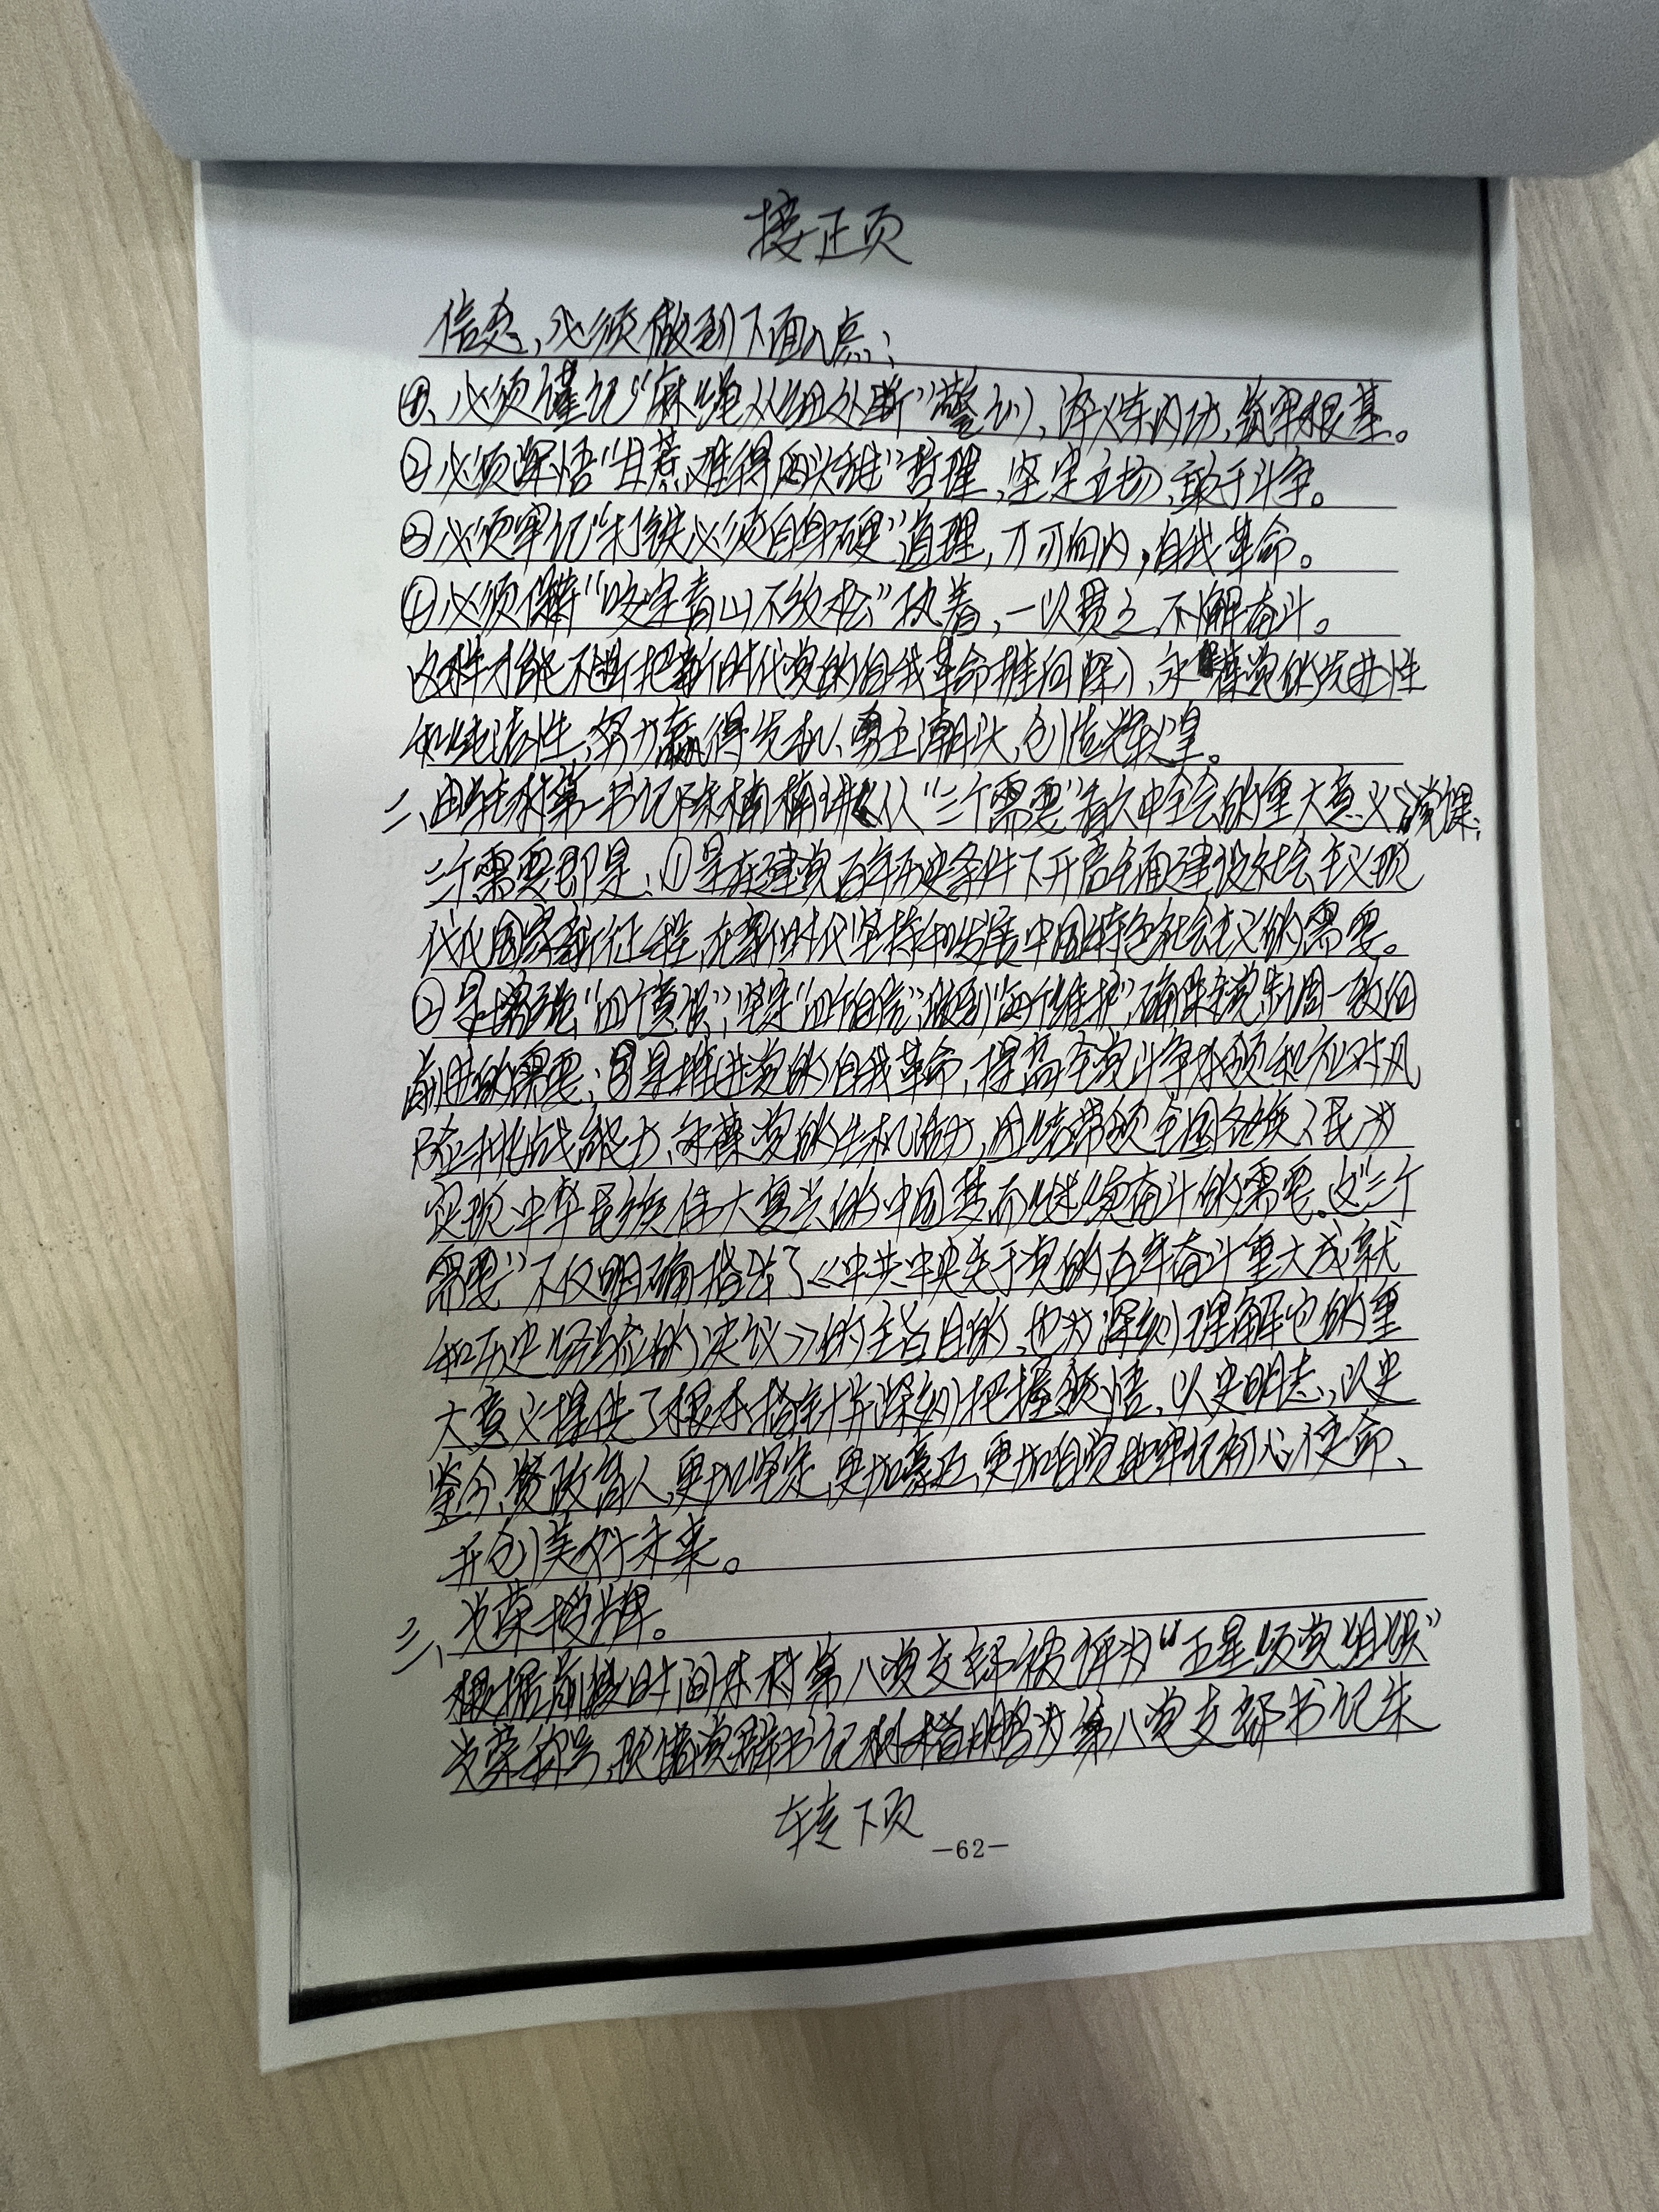 接正页
信念,必须做到下面几点:
①、必须谨记“麻绳从细处断”警训、淬炼内功,筑牢根基。
②必须深悟“甘蔗难得两头甜”哲理,坚定立场,敢于斗争。
③必须牢记“打铁必须自身硬”道理,刀刃向内,自我革命。
④必须保持“咬定青山不放松”执着,一以贯之,不懈奋斗。
这样才能不断把新时代党的自我革命推向深入,永葆党的先进性
和纯洁性,努力赢得先机、勇立潮头,创造辉煌。
二、由驻村第一书记陈楠楠讲《从“三个需要”看六中全会的重大意义》党课:
三个需要即是:①是在建党百年历史条件下开启全面建设社会主义现
代化国家新征程,在新时代坚持和发展中国特色社会主义的需要。
②是增强“四个意识”,坚定“四个自信”,做到“两个维护”,确保全党步调一致向
前进的需要;③是推进党的自我革命、提高全党斗争本领和应对风
险挑战能力,永葆党的生机活力,团结带领全国各族人民为
实现中华民族伟大复兴的中国梦而继续奋斗的需要。这“三个
需要”不仅明确指出了《中共中央关于党的百年奋斗重大成就
和历史经验的决议》的主旨目的,也为深刻理解它的重
大意义提供了根本指针并深刻把握领悟,以史明志,以史
鉴今,资政育人,更加坚定、更加豪迈、更加自觉地牢记初心使命、
开创美好未来。
三、光荣授牌。
根据前段时间本村第八党支部被评为“五星级党组织”
光荣称号,现请党群书记为第八党支部书记朱
转下页
—62—